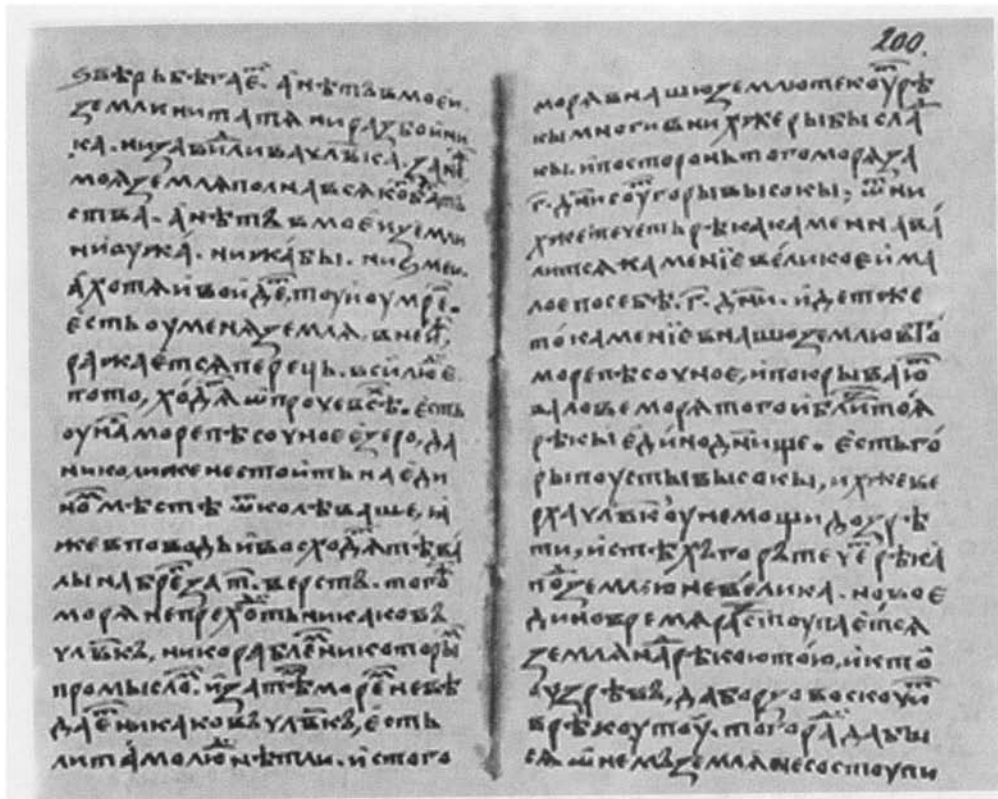 200.
ѕвѣрь бѣгаеⷮ. а нѣтъ в моеи
земли ни татѧ ни разбоини
ка. ни завидлива члв҃ка. занⷤ
моѧ землѧ полна всѧкоⷢ҇ баⷢ҇тъ
ства. а нѣтъ в моеи земли
ни ѹжа. ни жабы. ни змеи.
а хотѧ и воидеⷮ, тоу и оумреⷮ.
есть оу менѧ землѧ. в неиⷤ,
ражаетсѧ перець. вси люⷣе
по то, ходѧⷮ ѡпроче всѣⷯ. есть
оу наⷭ море пѣсочное езеро, да
николиже не стоить на еди
ноⷨ мѣстѣ ѿколѣ ваше, и
же в поводь и восходѧⷮ тѣ ва
лы на береⷢ҇ за т҃. верстъ. тогоⷤ
морѧ не преⷯоⷣть никаковъ
члв҃къ, ни кораблеⷨ ни которыⷨ
промыслоⷨ. и за тѣⷨ мореⷨ не вѣ
даеⷮ никаковъ члв҃къ, есть
ли тамо люⷣ нѣт ли. и с того
морѧ в нашю землю текоуⷮ рѣ
кы многи в нихже рыбы слаⷣ
кы. и по сторонь того морѧ за
г҃. дн҃и соуⷮ горы высокы; ѿ ни
хже течеть рѣка каменна ва
литсѧ камениѥ великое и ма
лое по себѣ. г҃. дн҃и. идет же
то камениѥ в нашю землю в тоⷤ
море пѣсочное, и покрываюⷮ
валове морѧ того и близ тоѧ
рѣкы едино дн҃ище. есть го
ры поусты высокы, ихже ве
рха члв҃коу не мощи дозрѣ
ти, и с тѣхъ горъ течеⷮ рѣка
поⷣ землею не велика. но во е
дино времѧ растоупаетсѧ
землѧ наⷣ рѣкою тою, и кто
оузрѣвъ, да борзо воскочиⷮ
в рѣкоу тоу. того раⷣ дабы
сѧ ѿ немъ землѧ не состоупи